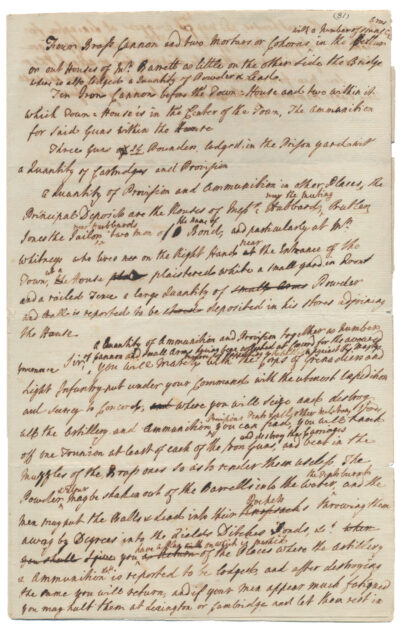 (31)
Fower Brass Cannon and two Mortars or Cohorns with a Number of small arms in the Cellar
or out Houses of Mr. Barrett a little on the other side the Bridge
where is also lodged a Quantity of Powder & Lead.
Ten Iron Cannon before the Town-House and two within it
which Town-House is in the Center of the Town, The Ammunition
for said Guns within the House
Three Guns 24 Pounders, lodged in the Prison Yard with
a Quantity of Cartridges and Provision
a Quantity of Provision and Ammunition in other Places, the
Principal Deposits are the Houses of Messrs. Hubbard, Butler, near the meeting
Jones the Taylor near Hubbards two men of the name of Bond, and particularly at Mr.
Whitneys who lives on the Right Hand near the Entrance of the
Town, at a House plaistered white a small yard in Front
and a railed Fence a large Quantity of small arms Powder
and Ball is reported to be deposited in his stores adjoining
the House
a Quantity of Ammunition and Provision together
Cannon and small Arms having been collected at Concord for the avowed
you will march with the Corps of Grenadiers and
Light Infantry put under your Command with the utmost expedition
and Secrecy to Concord, where you will seize and destroy
all the Artillery and Ammunition, Provisions Tents & all other military Stores
you can find, you will knock
off one Trunion at least of each of the Iron Guns, and destroy the Carriages and beat in the
muzzles of the Brass ones so as to render them useless The
Powder & Flour may be shaken out of the Barrells into the Water, and the
men may put the Balls & Lead into their Pockets throwing them
away by Degrees into the Fields Ditches Ponds, &c.
you of the Places where the Artillery
& Ammunition is reported to be lodged, and after destroying
the same you will return, and if your men appear much fatigued
you may halt them at Lexington or Cambridge and let them rest in